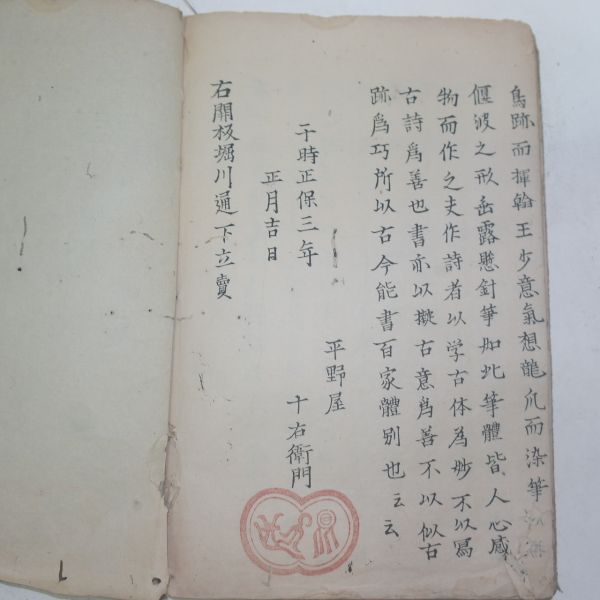 鳥跡而揮翰王少意氣想龍爪而染筆
偃波之形垂露懸針筆如此筆體皆人心感
物而作之夫作詩者以学古体為妙不以寫
古詩爲善也書亦以擬古意爲善不以似古
跡爲巧所以古今能書百家體別也云云
于時正保三年
正月吉日
平野屋
十右衛門
右開板堀川通下立賣